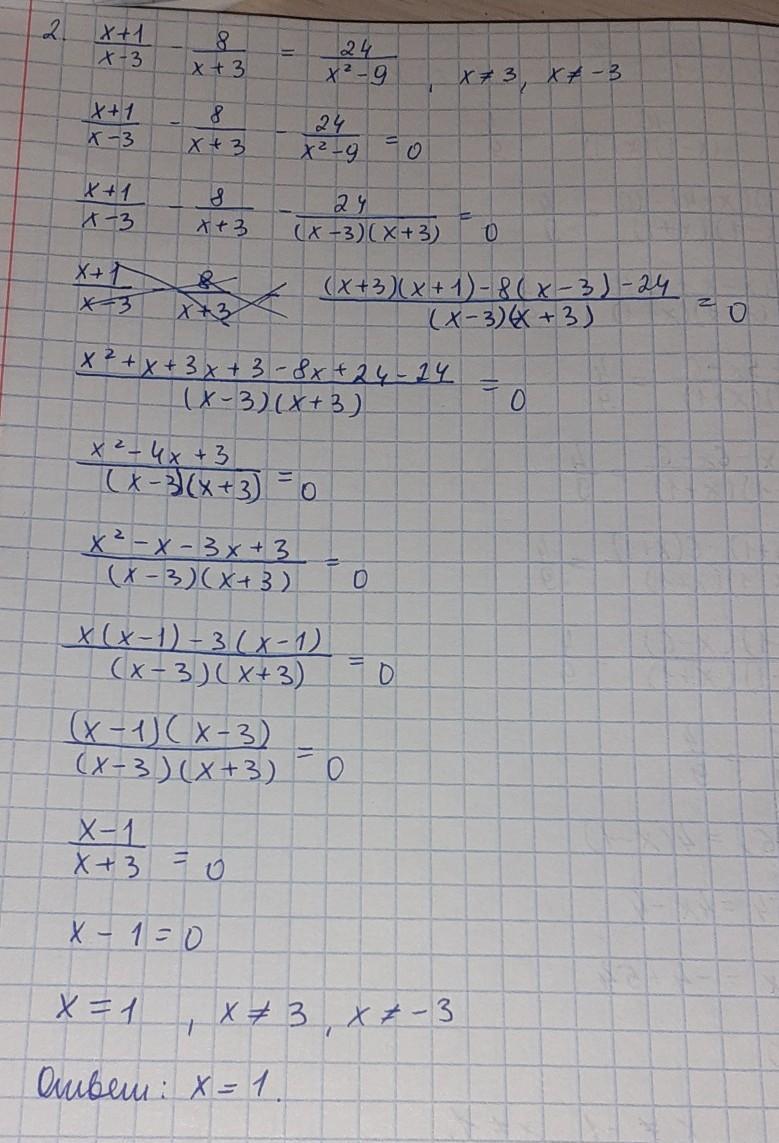 2. (x+1)/(x-3) - 8/(x+3) = 24/(x²-9) , x≠3, x≠-3
(x+1)/(x-3) - 8/(x+3) - 24/(x²-9) = 0
(x+1)/(x-3) - 8/(x+3) - 24/((x-3)(x+3)) = 0
(x+1)/(x-3) 8/(x+3) ((x+3)(x+1)-8(x-3)-24)/((x-3)(x+3)) = 0
(x²+x+3x+3-8x+24-24)/((x-3)(x+3)) = 0
(x²-4x+3)/((x-3)(x+3)) = 0
(x²-x-3x+3)/((x-3)(x+3)) = 0
(x(x-1)-3(x-1))/((x-3)(x+3)) = 0
((x-1)(x-3))/((x-3)(x+3)) = 0
(x-1)/(x+3) = 0
x-1=0
x=1 , x≠3, x≠-3
Ответ: x=1.